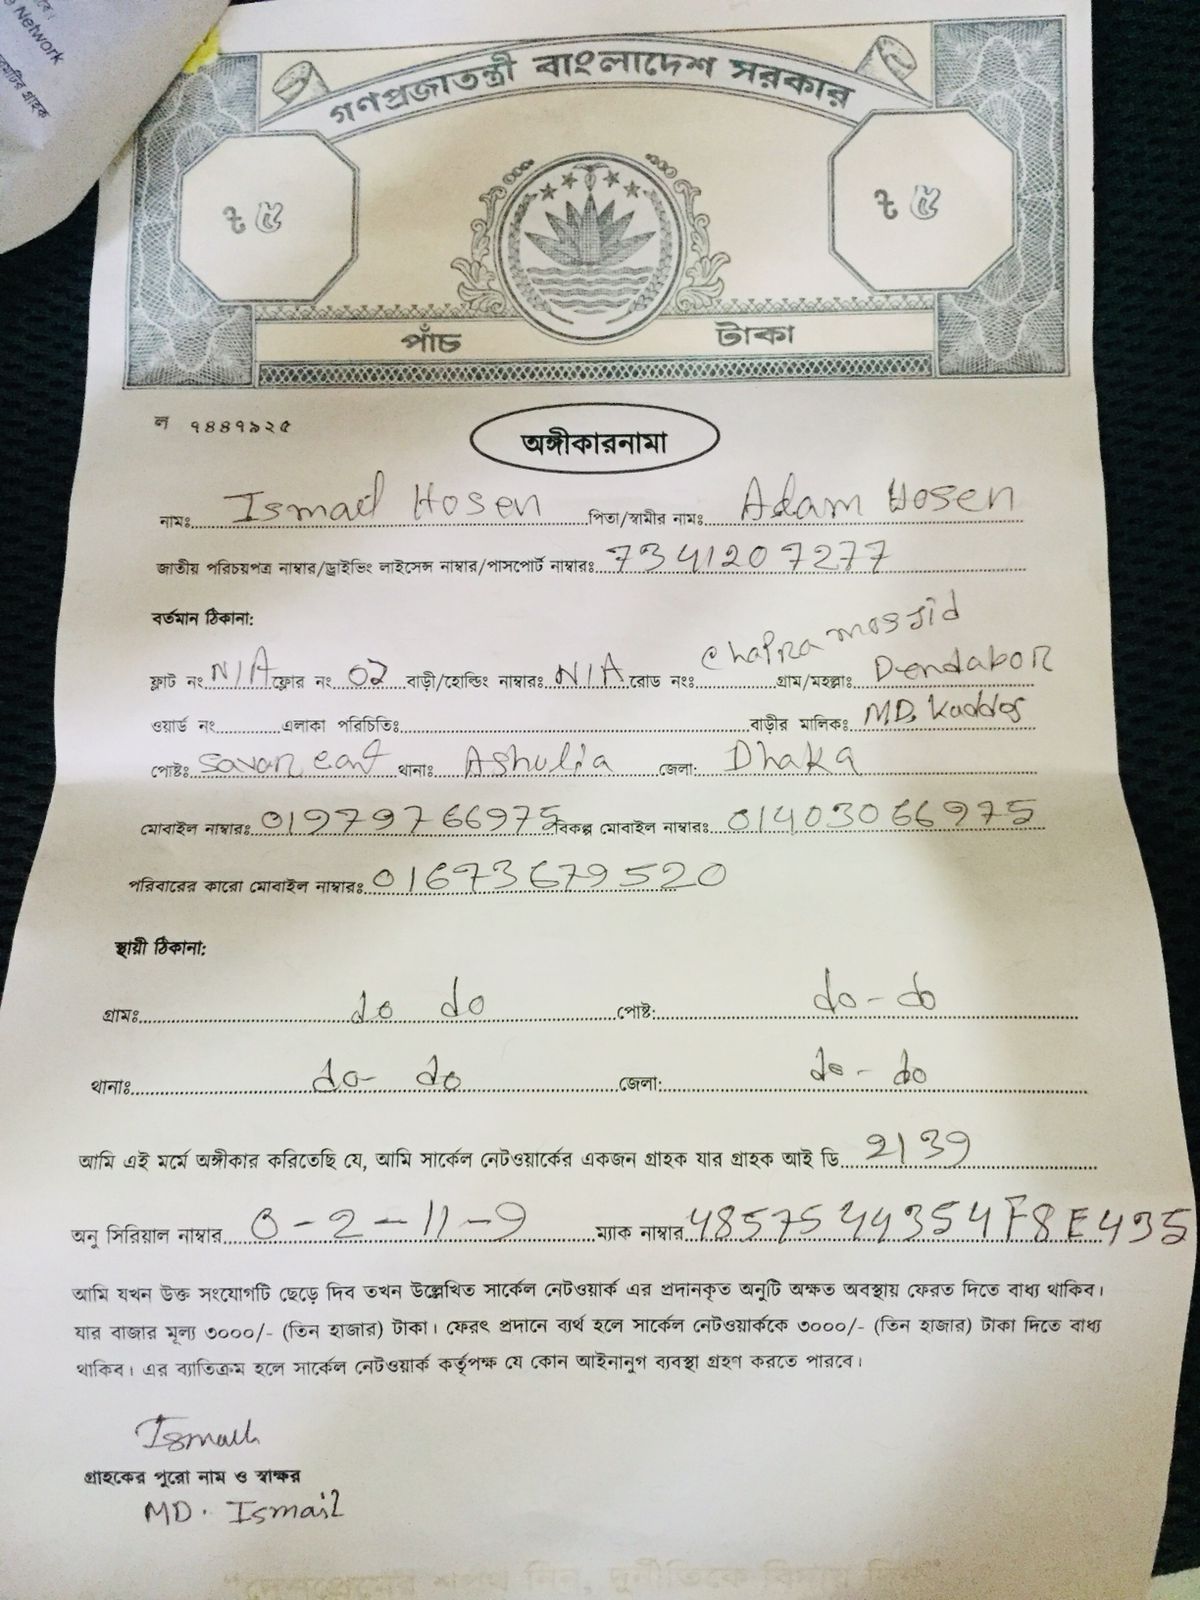 Network
গ্রাহক
গণপ্রজাতন্ত্রী বাংলাদেশ সরকার
ট ৫ ট ৫
পাঁচ টাকা
ল ৭৪৪৭৯২৫
অঙ্গীকারনামা
নামঃ Ismail Hosen পিতা/স্বামীর নামঃ Adam Hosen
জাতীয় পরিচয়পত্র নাম্বার/ড্রাইভিং লাইসেন্স নাম্বার/পাসপোর্ট নাম্বারঃ 7341207277
বর্তমান ঠিকানা:
ফ্লাট নং N/A ফ্লোর নং 02 বাড়ী/হোল্ডিং নাম্বারঃ N/A রোড নংঃ Chapra mosjid গ্রাম/মহল্লাঃ Dendabor
ওয়ার্ড নং এলাকা পরিচিতিঃ বাড়ীর মালিকঃ MD. Kaddos
পোষ্টঃ Savar cant থানাঃ Ashulia জেলা: Dhaka
মোবাইল নাম্বারঃ 01979766975 বিকল্প মোবাইল নাম্বারঃ 01403066975
পরিবারের কারো মোবাইল নাম্বারঃ 01673679520
স্থায়ী ঠিকানা:
গ্রামঃ do do পোষ্ট: do - do
থানাঃ do - do জেলা: do - do
আমি এই মর্মে অঙ্গীকার করিতেছি যে, আমি সার্কেল নেটওয়ার্কের একজন গ্রাহক যার গ্রাহক আই ডি 2139
অনু সিরিয়াল নাম্বার 0-2-11-9 ম্যাক নাম্বার 4857544354F8E435
আমি যখন উক্ত সংযোগটি ছেড়ে দিব তখন উল্লেখিত সার্কেল নেটওয়ার্ক এর প্রদানকৃত অনুটি অক্ষত অবস্থায় ফেরত দিতে বাধ্য থাকিব।
যার বাজার মূল্য ৩০০০/- (তিন হাজার) টাকা। ফেরৎ প্রদানে ব্যর্থ হলে সার্কেল নেটওয়ার্ককে ৩০০০/- (তিন হাজার) টাকা দিতে বাধ্য
থাকিব। এর ব্যাতিক্রম হলে সার্কেল নেটওয়ার্ক কর্তৃপক্ষ যে কোন আইনানুগ ব্যবস্থা গ্রহণ করতে পারবে।
Ismail
গ্রাহকের পুরো নাম ও স্বাক্ষর
MD. Ismail